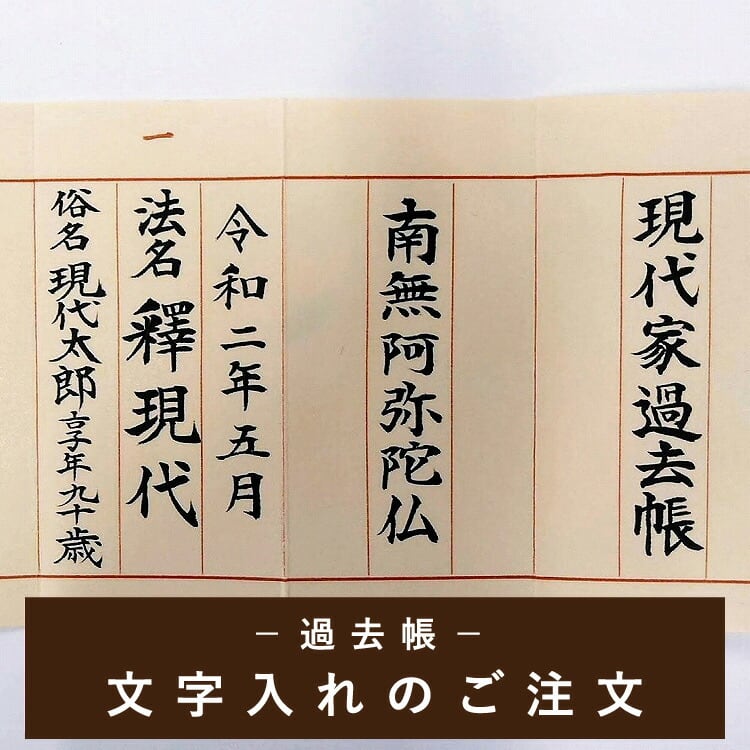 現代家過去帳
南無阿弥陀仏
一
令和二年五月
法名 釋現代
俗名 現代太郎 享年九十歳
－過去帳－
文字入れのご注文